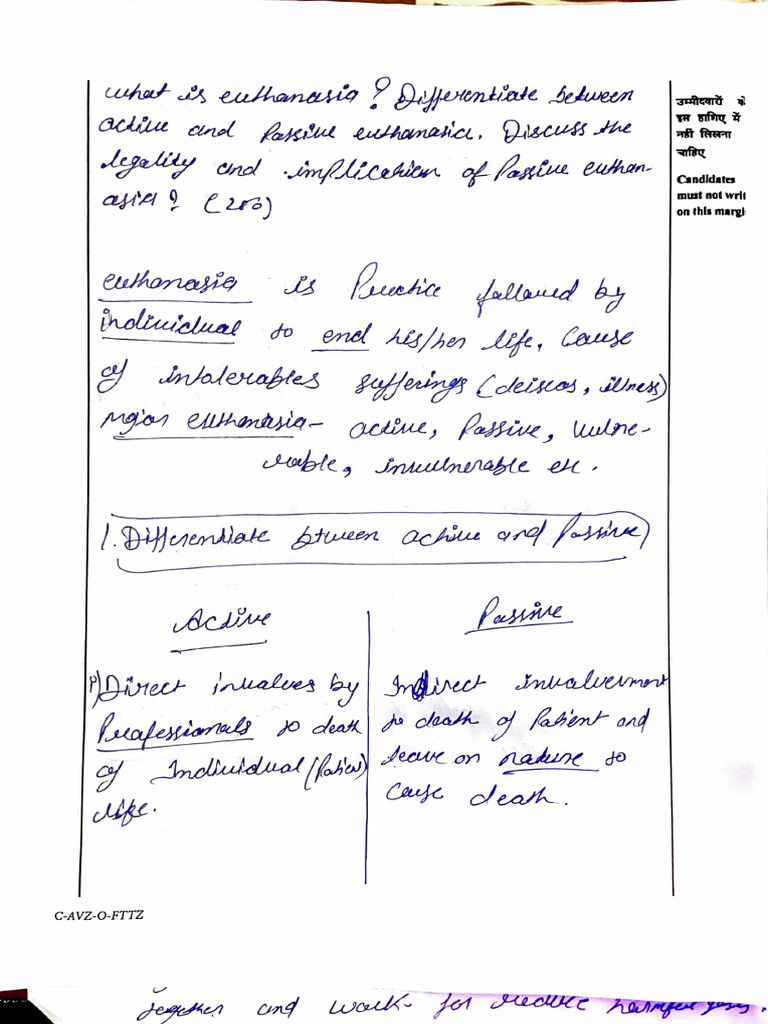 what is euthanasia? Differentiate between
active and Passive euthanasia. Discuss the
legality and implication of Passive euthan-
asia? (200)
euthanasia is Practice followed by
individual to end his/her life, Cause
of intolerables sufferings (deiseas, illness)
Major euthanasia- active, Passive, Vulne-
rable, invulnerable etc.
1. Differentiate btween active and Passive
Active
Passive
1) Direct involves by
Professionals to death
of Individual (Patient)
life.
Indirect involvement
to death of Patient and
leave on nature to
cause death.
उम्मीदवारों के
इस हाशिए में
नहीं लिखना
चाहिए
Candidates
must not writ
on this margi
C-AVZ-O-FTTZ
together and work for reduce harmful gases.